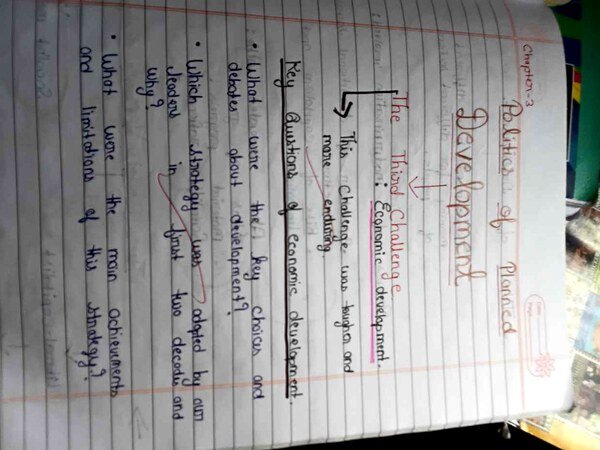 Chapter-3
Politics of Planned
Development
The Third Challenge
: Economic development.
This challenge was tougher and
more enduring
Key Questions of economic development.
• What were the key choices and
debates about development?
• Which strategy was adopted by our
leaders in first two decades and
why?
• What were the main achievements
and limitations of this strategy?